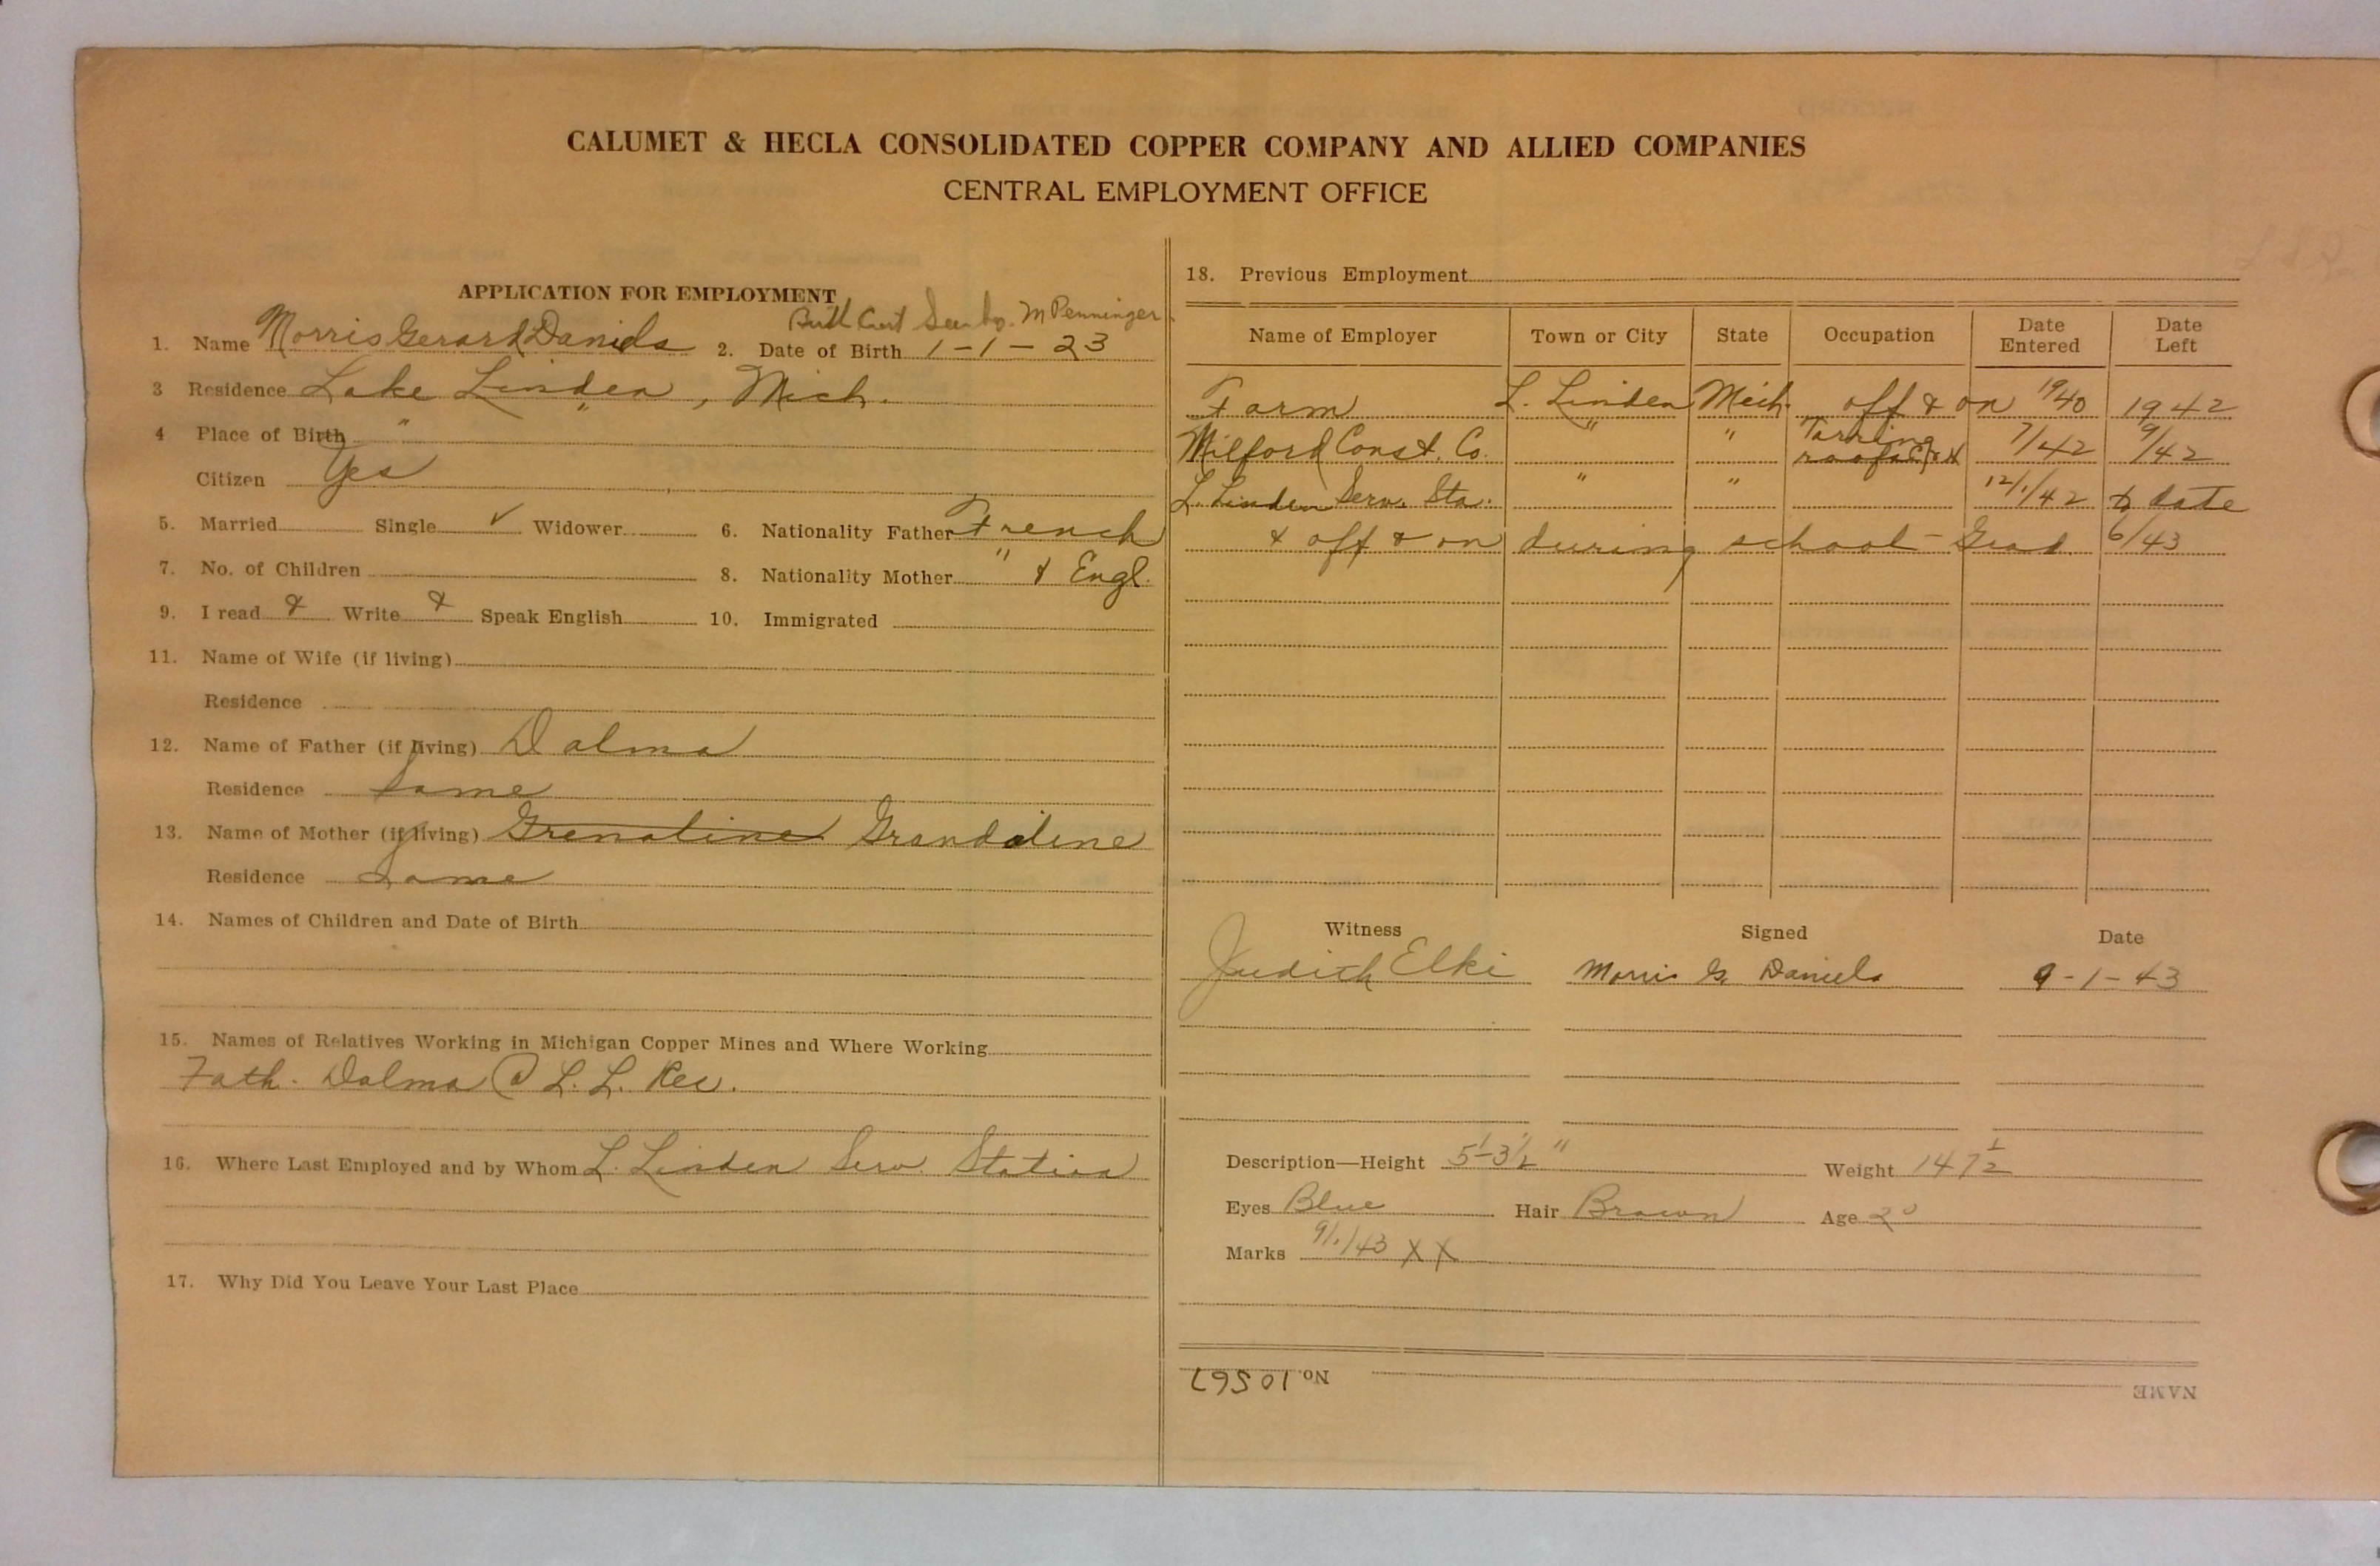 CALUMET & HECLA CONSOLIDATED COPPER COMPANY AND ALLIED COMPANIES
CENTRAL EMPLOYMENT OFFICE
APPLICATION FOR EMPLOYMENT
Birth Cert Seen by. M Penninger
1. Name Morris Gerard Daniels 2. Date of Birth 1-1-23
3 Residence Lake Linden, Mich.
4 Place of Birth " "
Citizen Yes
5. Married Single ✓ Widower 6. Nationality Father French
7. No. of Children 8. Nationality Mother " & Engl.
9. I read & Write & Speak English 10. Immigrated
11. Name of Wife (if living)
Residence
12. Name of Father (if living) Dalma
Residence Same
13. Name of Mother (if living) Grenaline Grandoline
Residence Same
14. Names of Children and Date of Birth
15. Names of Relatives Working in Michigan Copper Mines and Where Working
Fath. Dalma @ L. L. Rec.
16. Where Last Employed and by Whom L. Linden Serv. Station
17. Why Did You Leave Your Last Place
18. Previous Employment
Name of Employer Town or City State Occupation Date Entered Date Left
Farm L. Linden Mich. off & on 1940 1942
Milford Const. Co. " " Tarring roofs 7/42 9/42
L. Linden Serv. Sta. " " 12/1/42 to date
& off & on during school - Grad 6/43
Witness Signed Date
Judith Elki Morris G. Daniels 9-1-43
Description—Height 5'-3 1/2" Weight 147 1/2
Eyes Blue Hair Brown Age 20
Marks 9/1/43 X X
No. 10567 NAME